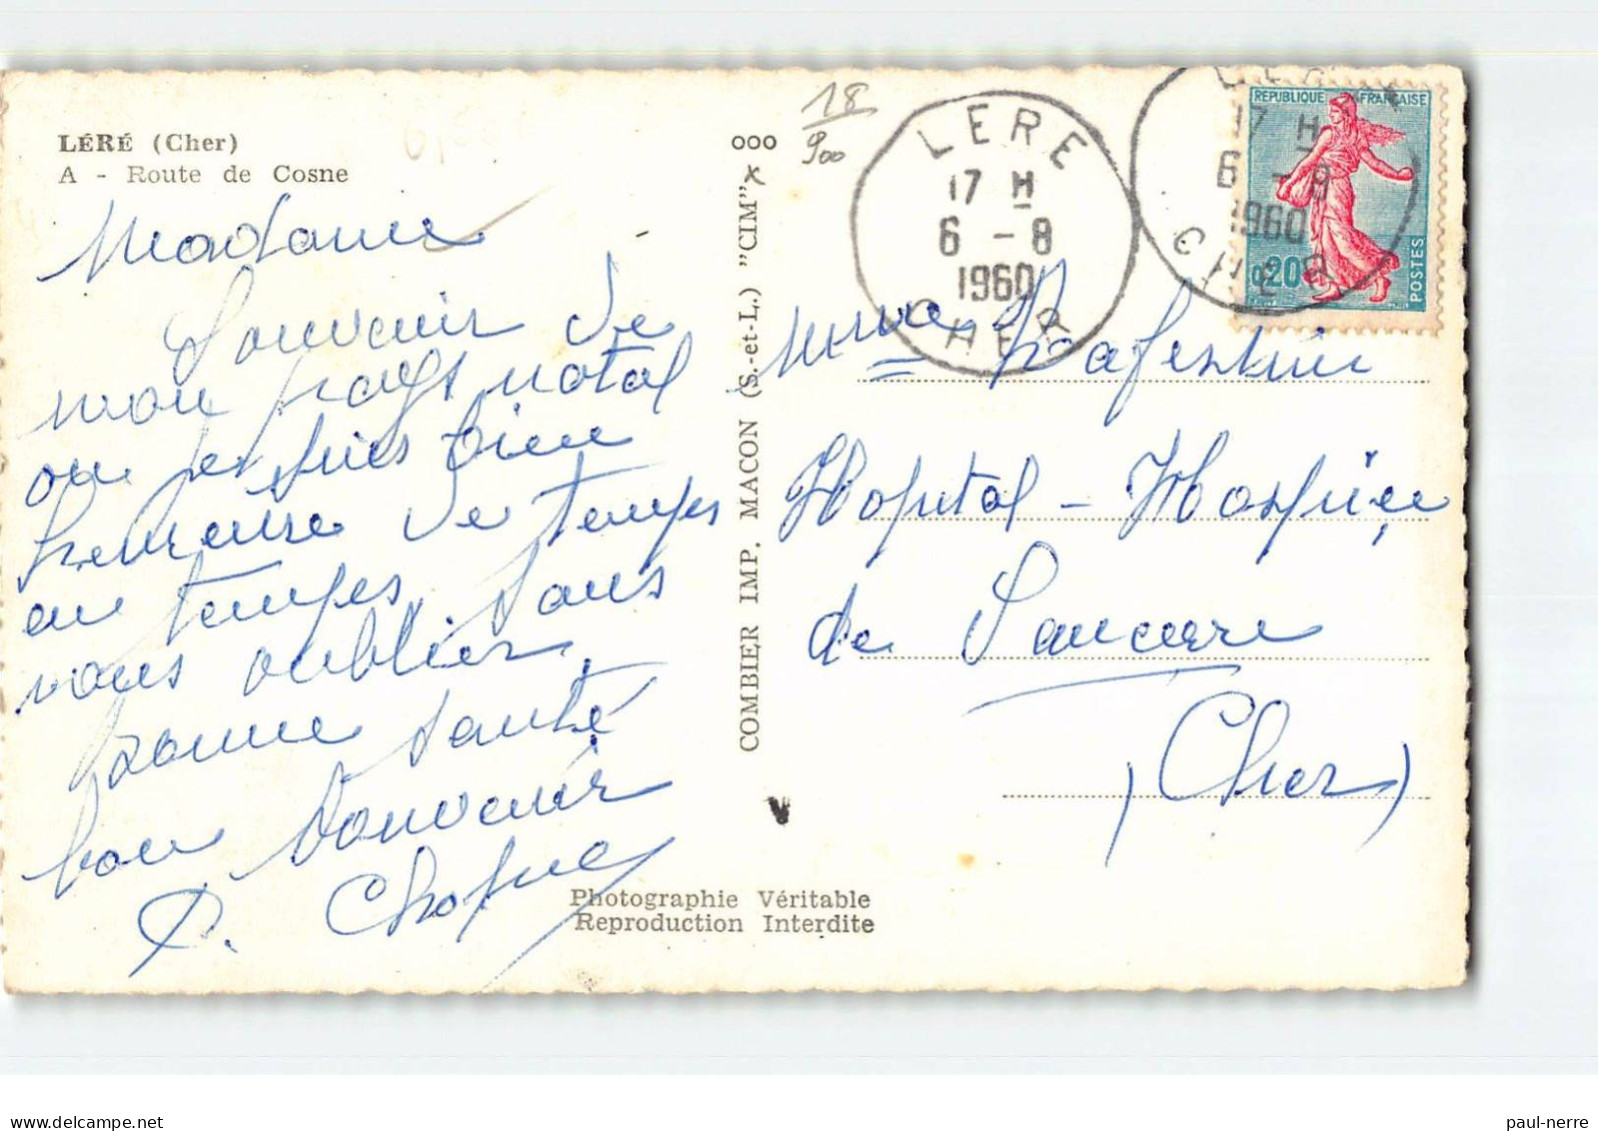 LÉRÉ (Cher)
A - Route de Cosne
Madame
Souvenir de
mon pays natal
ou je suis bien
heureuse de temps
en temps sans
vous oublier
bonne santé
bon souvenir
ooo
18
900
COMBIER IMP. MACON (S.-et-L.) "CIM"
LERE
17 H
6 - 8
1960
CHER
17 H
6 - 8
1960
CHER
REPUBLIQUE FRANÇAISE
0,20
POSTES
Mme
Hopital - Hospice
de Sancerre
(Cher)
Photographie Véritable
Reproduction Interdite
paul-nerre